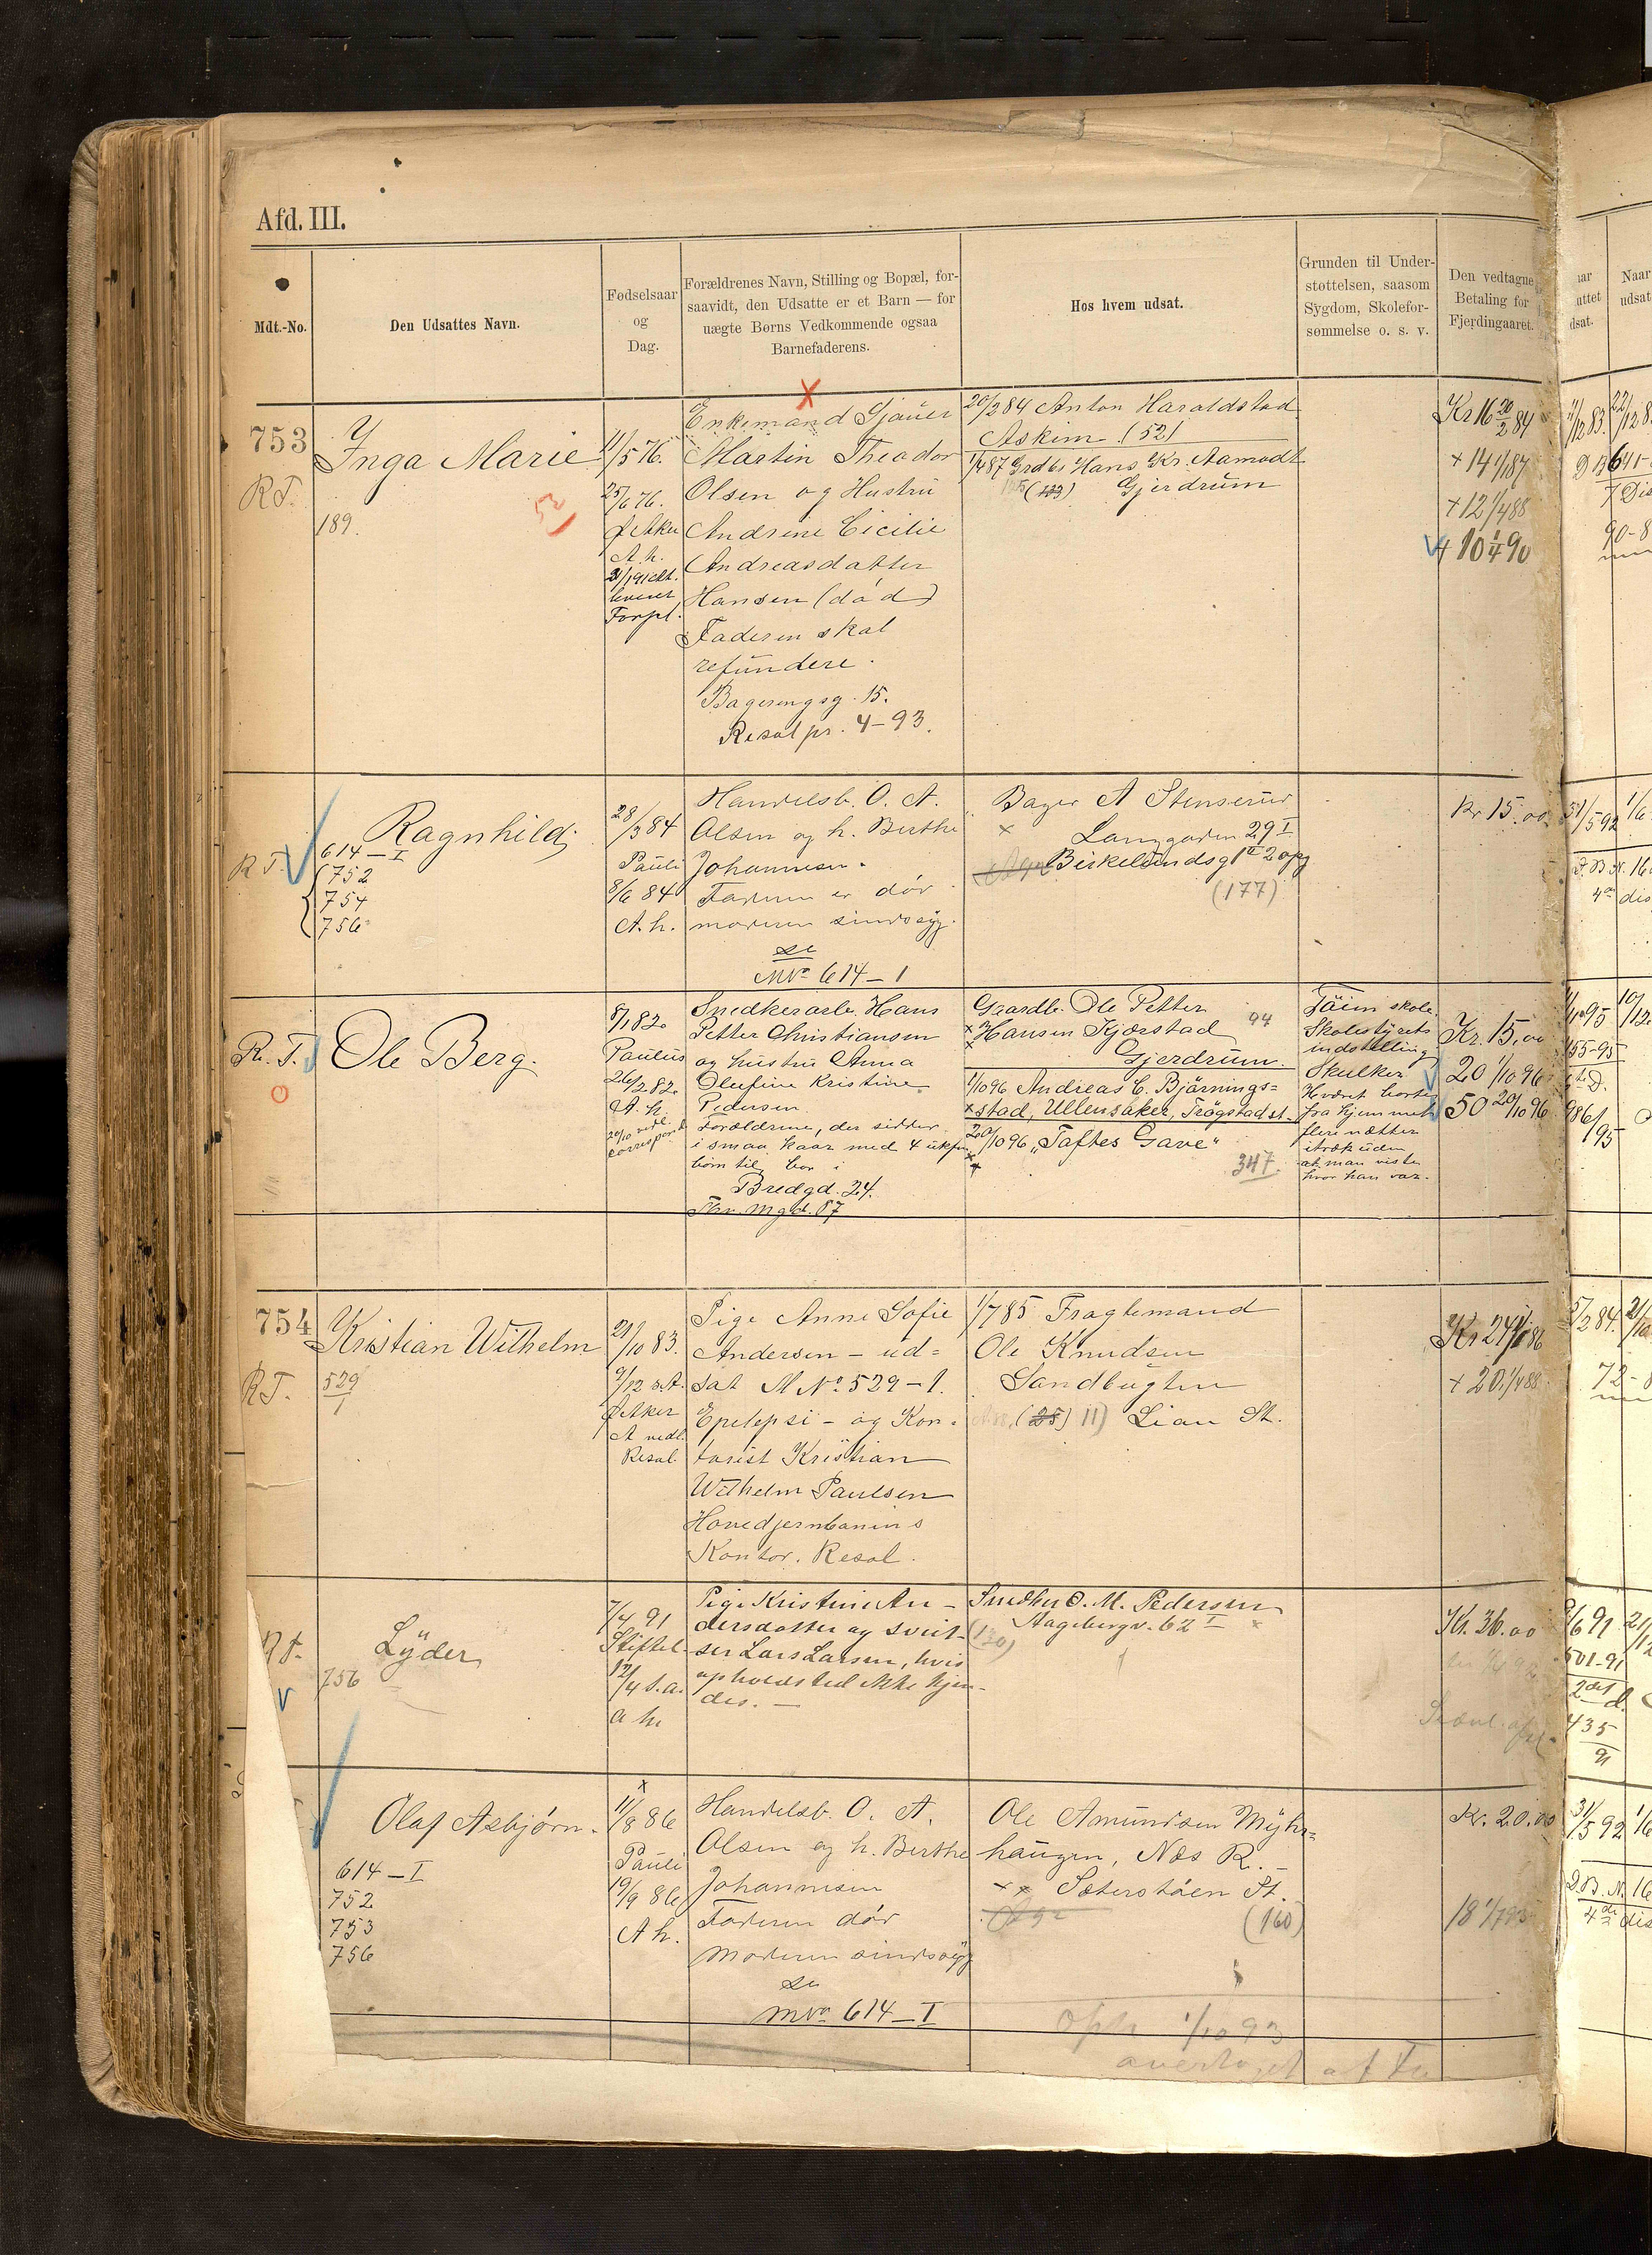 Afd. III.
Mdt.-No.
Den Udsattes Navn.
Fødselsaar
og
Dag.
Forældrenes Navn, Stilling og Bopæl, for-
saavidt, den Udsatte er et Barn — for
uægte Børns Vedkommende ogsaa
Barnefaderens.
Hos hvem udsat.
Grunden til Under-
støttelsen, saasom
Sygdom, Skolefor-
sømmelse o. s. v.
Den vedtagne
Betaling for
Fjerdingaaret.
753
R T.
Inga Marie
189.
52
11/5 76.
25/6 76.
Ø Aker
A. h.
Forpl.
X
Enkemand Gjauer
Martin Theodor
Olsen og Hustru
Andrine Cicilie
Andreasdatter
Hansen (død)
Faderen skal
refundere.
Bagerengsg. 15.
Resol pr. 4-93.
20/2 84 Anton Haraldstad
Askim (52)
1/4 87 Grdbr Hans Kr. Aamodt
Gjerdrum
Kr 16 20/2 84
+ 14 1/4 87
+ 12 1/4 88
+ 10 1/4 90
R T.
Ragnhild
614-I
752
754
756
28/3 84
Pauli
8/6 84
A. h.
Handelsb. O. A.
Olsen og h. Berthe
Johannesen.
Faderen er død
moderen sindssyg.
se
MNo 614-1
Bager A Stenserud
Langgaden 29 I
Birkelundsg 1 II 2 opg
(177)
Kr. 15.00
R. T.
Ole Berg.
8/1 82.
Paulus
26/2 82.
A. h.
Snedkerarb. Hans
Petter Christiansen
og hustru Anna
Olufine Kristine
Pedersen.
Forældrene, der sidder
i smaa kaar med 4 ukfm
børn til, bor i
Bredgd. 24.
Gaardbr. Ole Petter
Hansen Kjærstad 94
Gjerdrum.
1/10 96 Andreas C. Bjørnings=
stad, Ullensaker, Trøgstad st.
20/10 96 "Toftes Gave"
347.
Tøien skole.
Skolestyrets
indstilling
Skulker
Hværet borte
fra hjemmet
flere nætter
itræk uden
at man viste
hvor han var.
Kr. 15,00
20 1/10 96
50 20/10 96
754
R T.
Kristian Wilhelm
529
1
21/10 83.
9/12 s. A.
Ø Aker
A nedl.
Resol.
Pige Anne Sofie
Andersen - ud=
sat M No 529-1.
Epelepsi - og Kon-
torist Kristian
Wilhelm Paulsen
Hovedjernbanens
Kontor. Resol.
1/7 85 Fragtemand
Ole Knudsen
Sandbugten
(25) 11) Lian St.
Kr 24 1/1 86
+ 20 1/4 88
Lyder
756
7/4 91
Stiftel.
12/4 s. a.
a h.
Pige Kristine An-
dersdatter og Sveit-
ser Lars Larsen, hvis
opholdssted ikke kjen-
des. —
Snedker O. M. Pedersen
Aagebergv. 62 I
(130)
Kr. 36.00
Olaf Asbjørn.
614-I
752
753
756
11/8 86
Pauli
19/9 86
A h.
Handelsb. O. A.
Olsen og h. Berthe
Johannesen
Faderen død
Moderen sindssyg
se
MNo 614-I
Ole Amundsen Myhr=
haugen, Næs R.
Sæterstøen St.
(160)
Kr. 20.00
18 1/7 93
oph 1/10 93
overtaget af